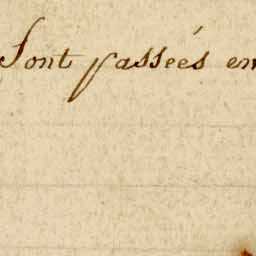 Sont passeés en